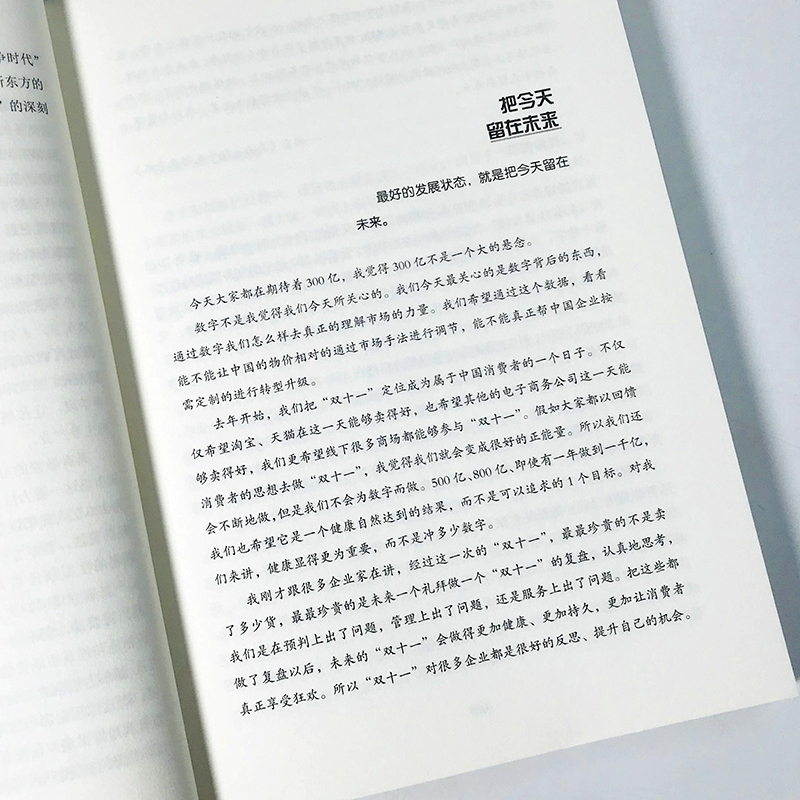 争时代”
新东方的
”的深刻
把今天
留在未来
最好的发展状态，就是把今天留在
未来。
今天大家都在期待着300亿，我觉得300亿不是一个大的悬念。
数字不是我觉得我们今天所关心的。我们今天最关心的是数字背后的东西，
通过数字我们怎么样去真正的理解市场的力量。我们希望通过这个数据，看看
能不能让中国的物价相对的通过市场手法进行调节，能不能真正帮中国企业按
需定制的进行转型升级。
去年开始，我们把“双十一”定位成为属于中国消费者的一个日子。不仅
仅希望淘宝、天猫在这一天能够卖得好，也希望其他的电子商务公司这一天能
够卖得好，我们更希望线下很多商场都能够参与“双十一”。假如大家都以回馈
消费者的思想去做“双十一”，我觉得我们就会变成很好的正能量。所以我们还
会不断地做，但是我们不会为数字而做。500亿、800亿、即使有一年做到一千亿，
我们也希望它是一个健康自然达到的结果，而不是可以追求的1个目标。对我
们来讲，健康显得更为重要，而不是冲多少数字。
我刚才跟很多企业家在讲，经过这一次的“双十一”，最最珍贵的不是卖
了多少货，最最珍贵的是未来一个礼拜做一个“双十一”的复盘，认真地思考，
我们是在预判上出了问题，管理上出了问题，还是服务上出了问题。把这些都
做了复盘以后，未来的“双十一”会做得更加健康、更加持久，更加让消费者
真正享受狂欢。所以“双十一”对很多企业都是很好的反思、提升自己的机会。